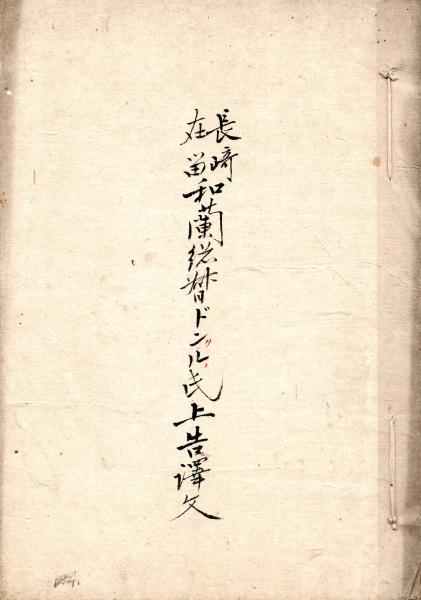 長崎
在留和蘭総督ドンル氏上告譯文